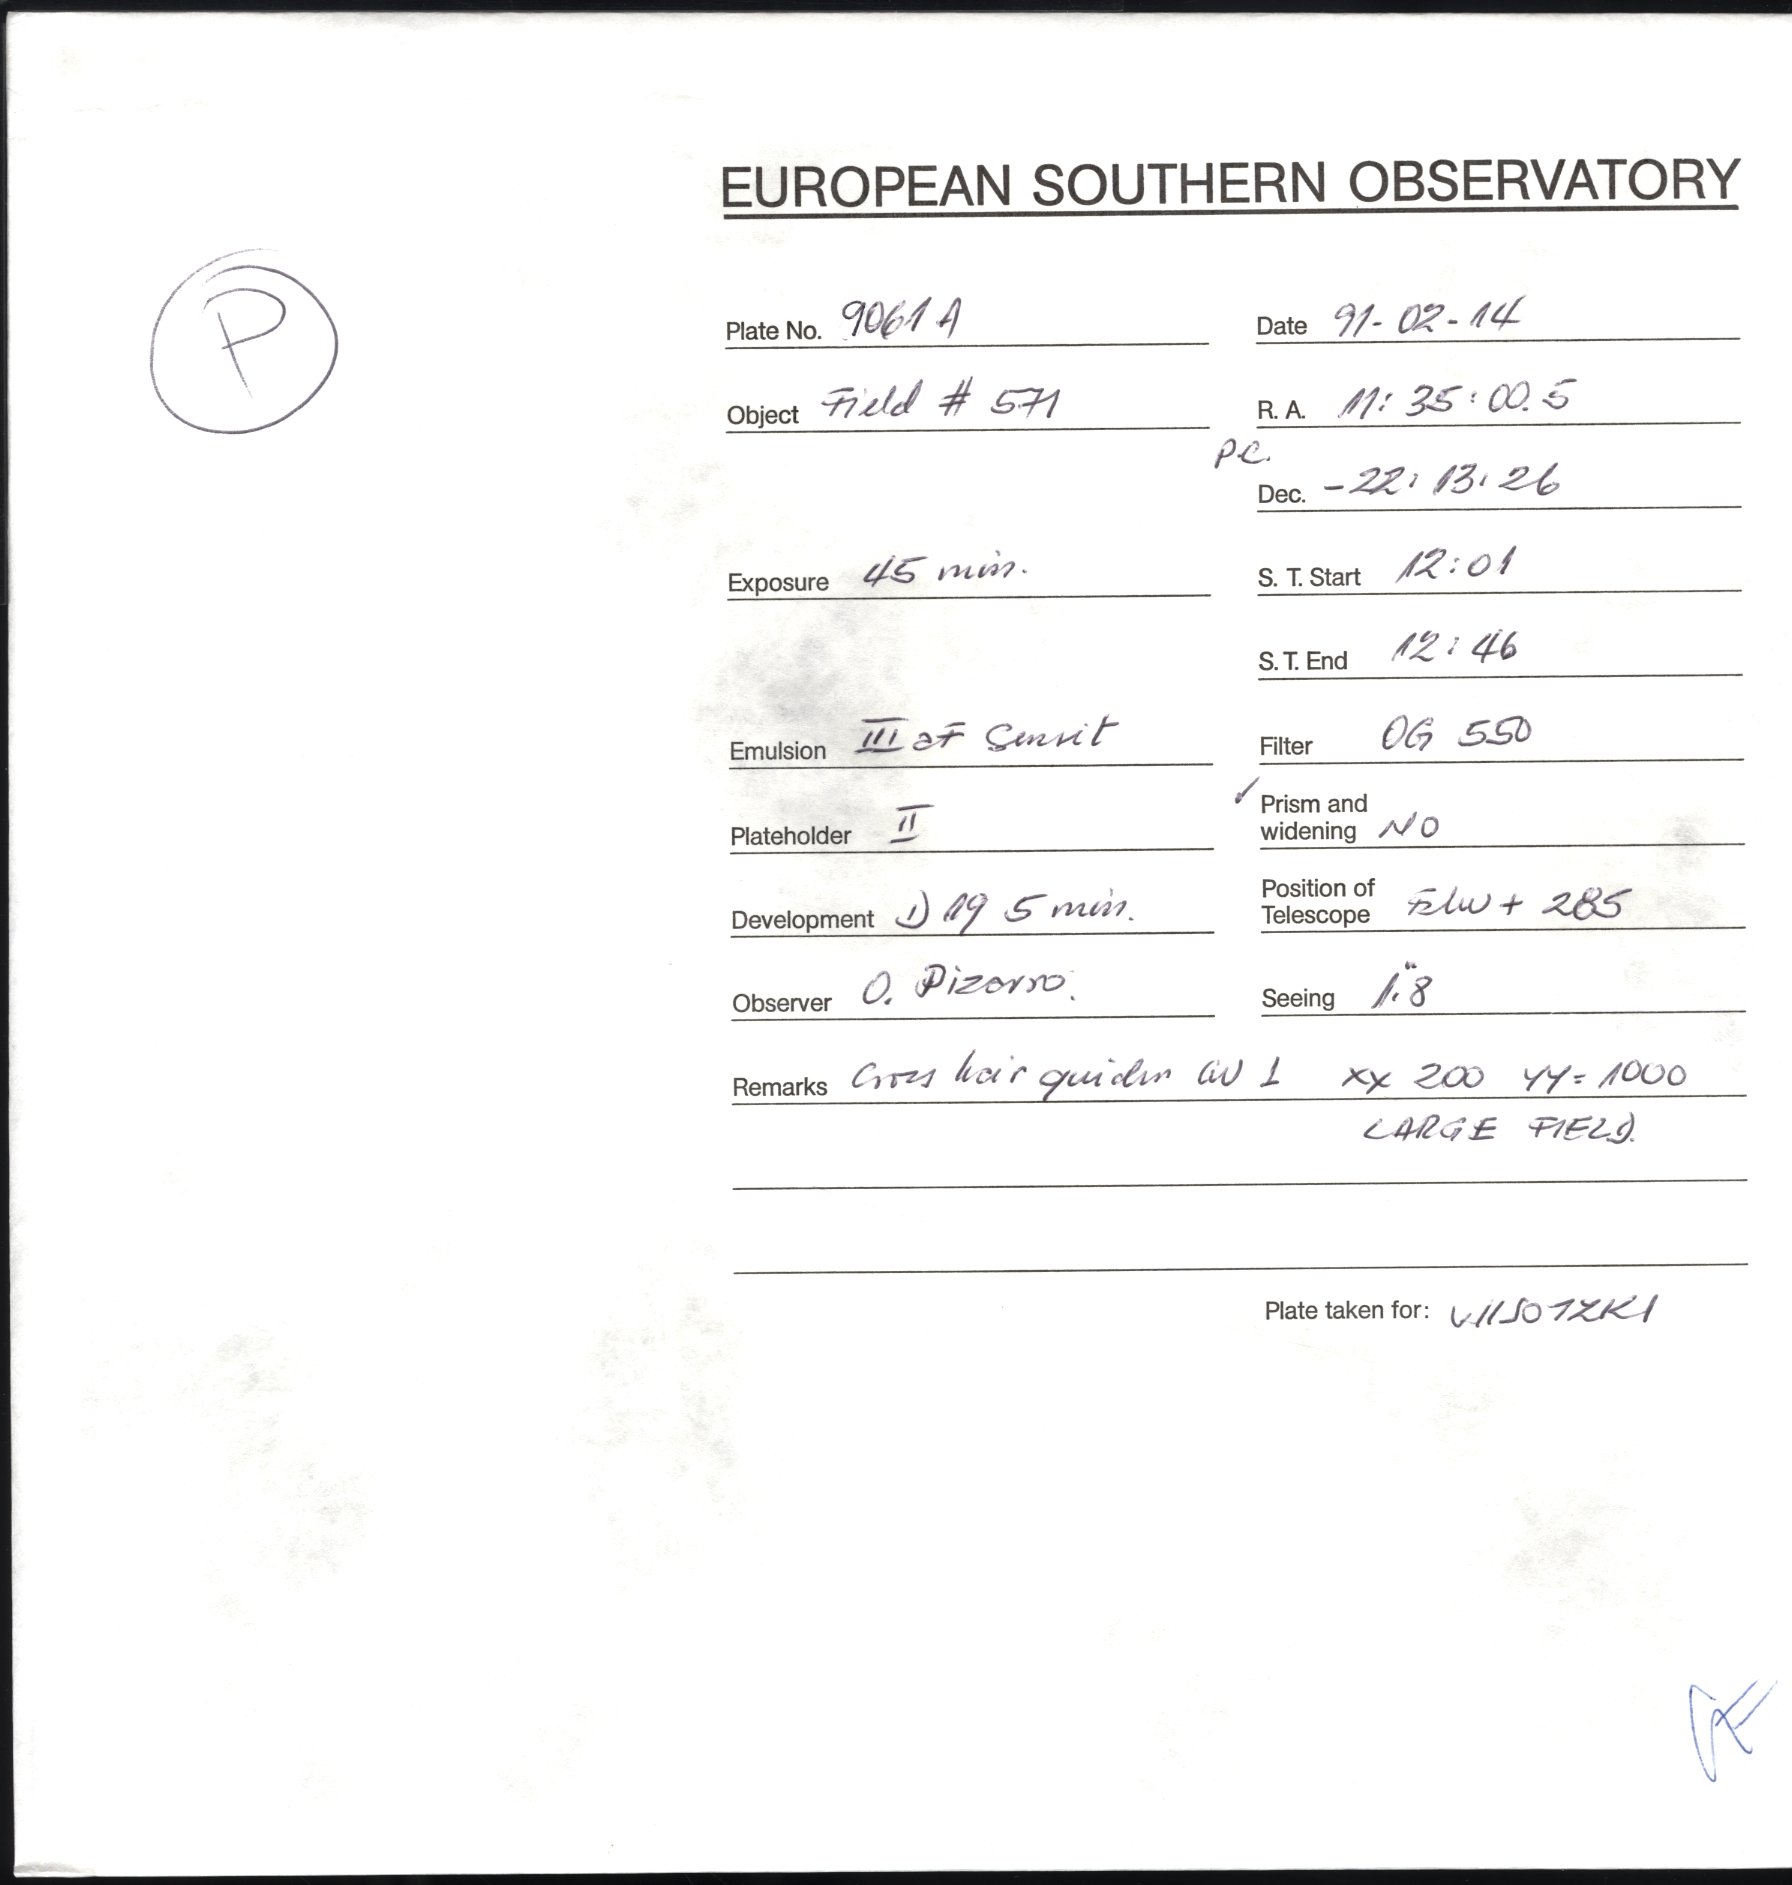 EUROPEAN SOUTHERN OBSERVATORY
P
Plate No. 9061 A Date 91-02-14
Object Field # 571 R. A. 11:35:00.5
P.C.
Dec. -22:13:26
Exposure 45 min. S. T. Start 12:01
S. T. End 12:46
Emulsion III aF Sensit Filter OG 550
Plateholder II ✓ Prism and widening NO
Development 1) 19 5 min. Position of Telescope + 285
Observer O. Pizarro. Seeing 1."8
Remarks Cross hair guider 1 xx 200 yy= 1000
LARGE FIELD.
Plate taken for: WISOTZKI